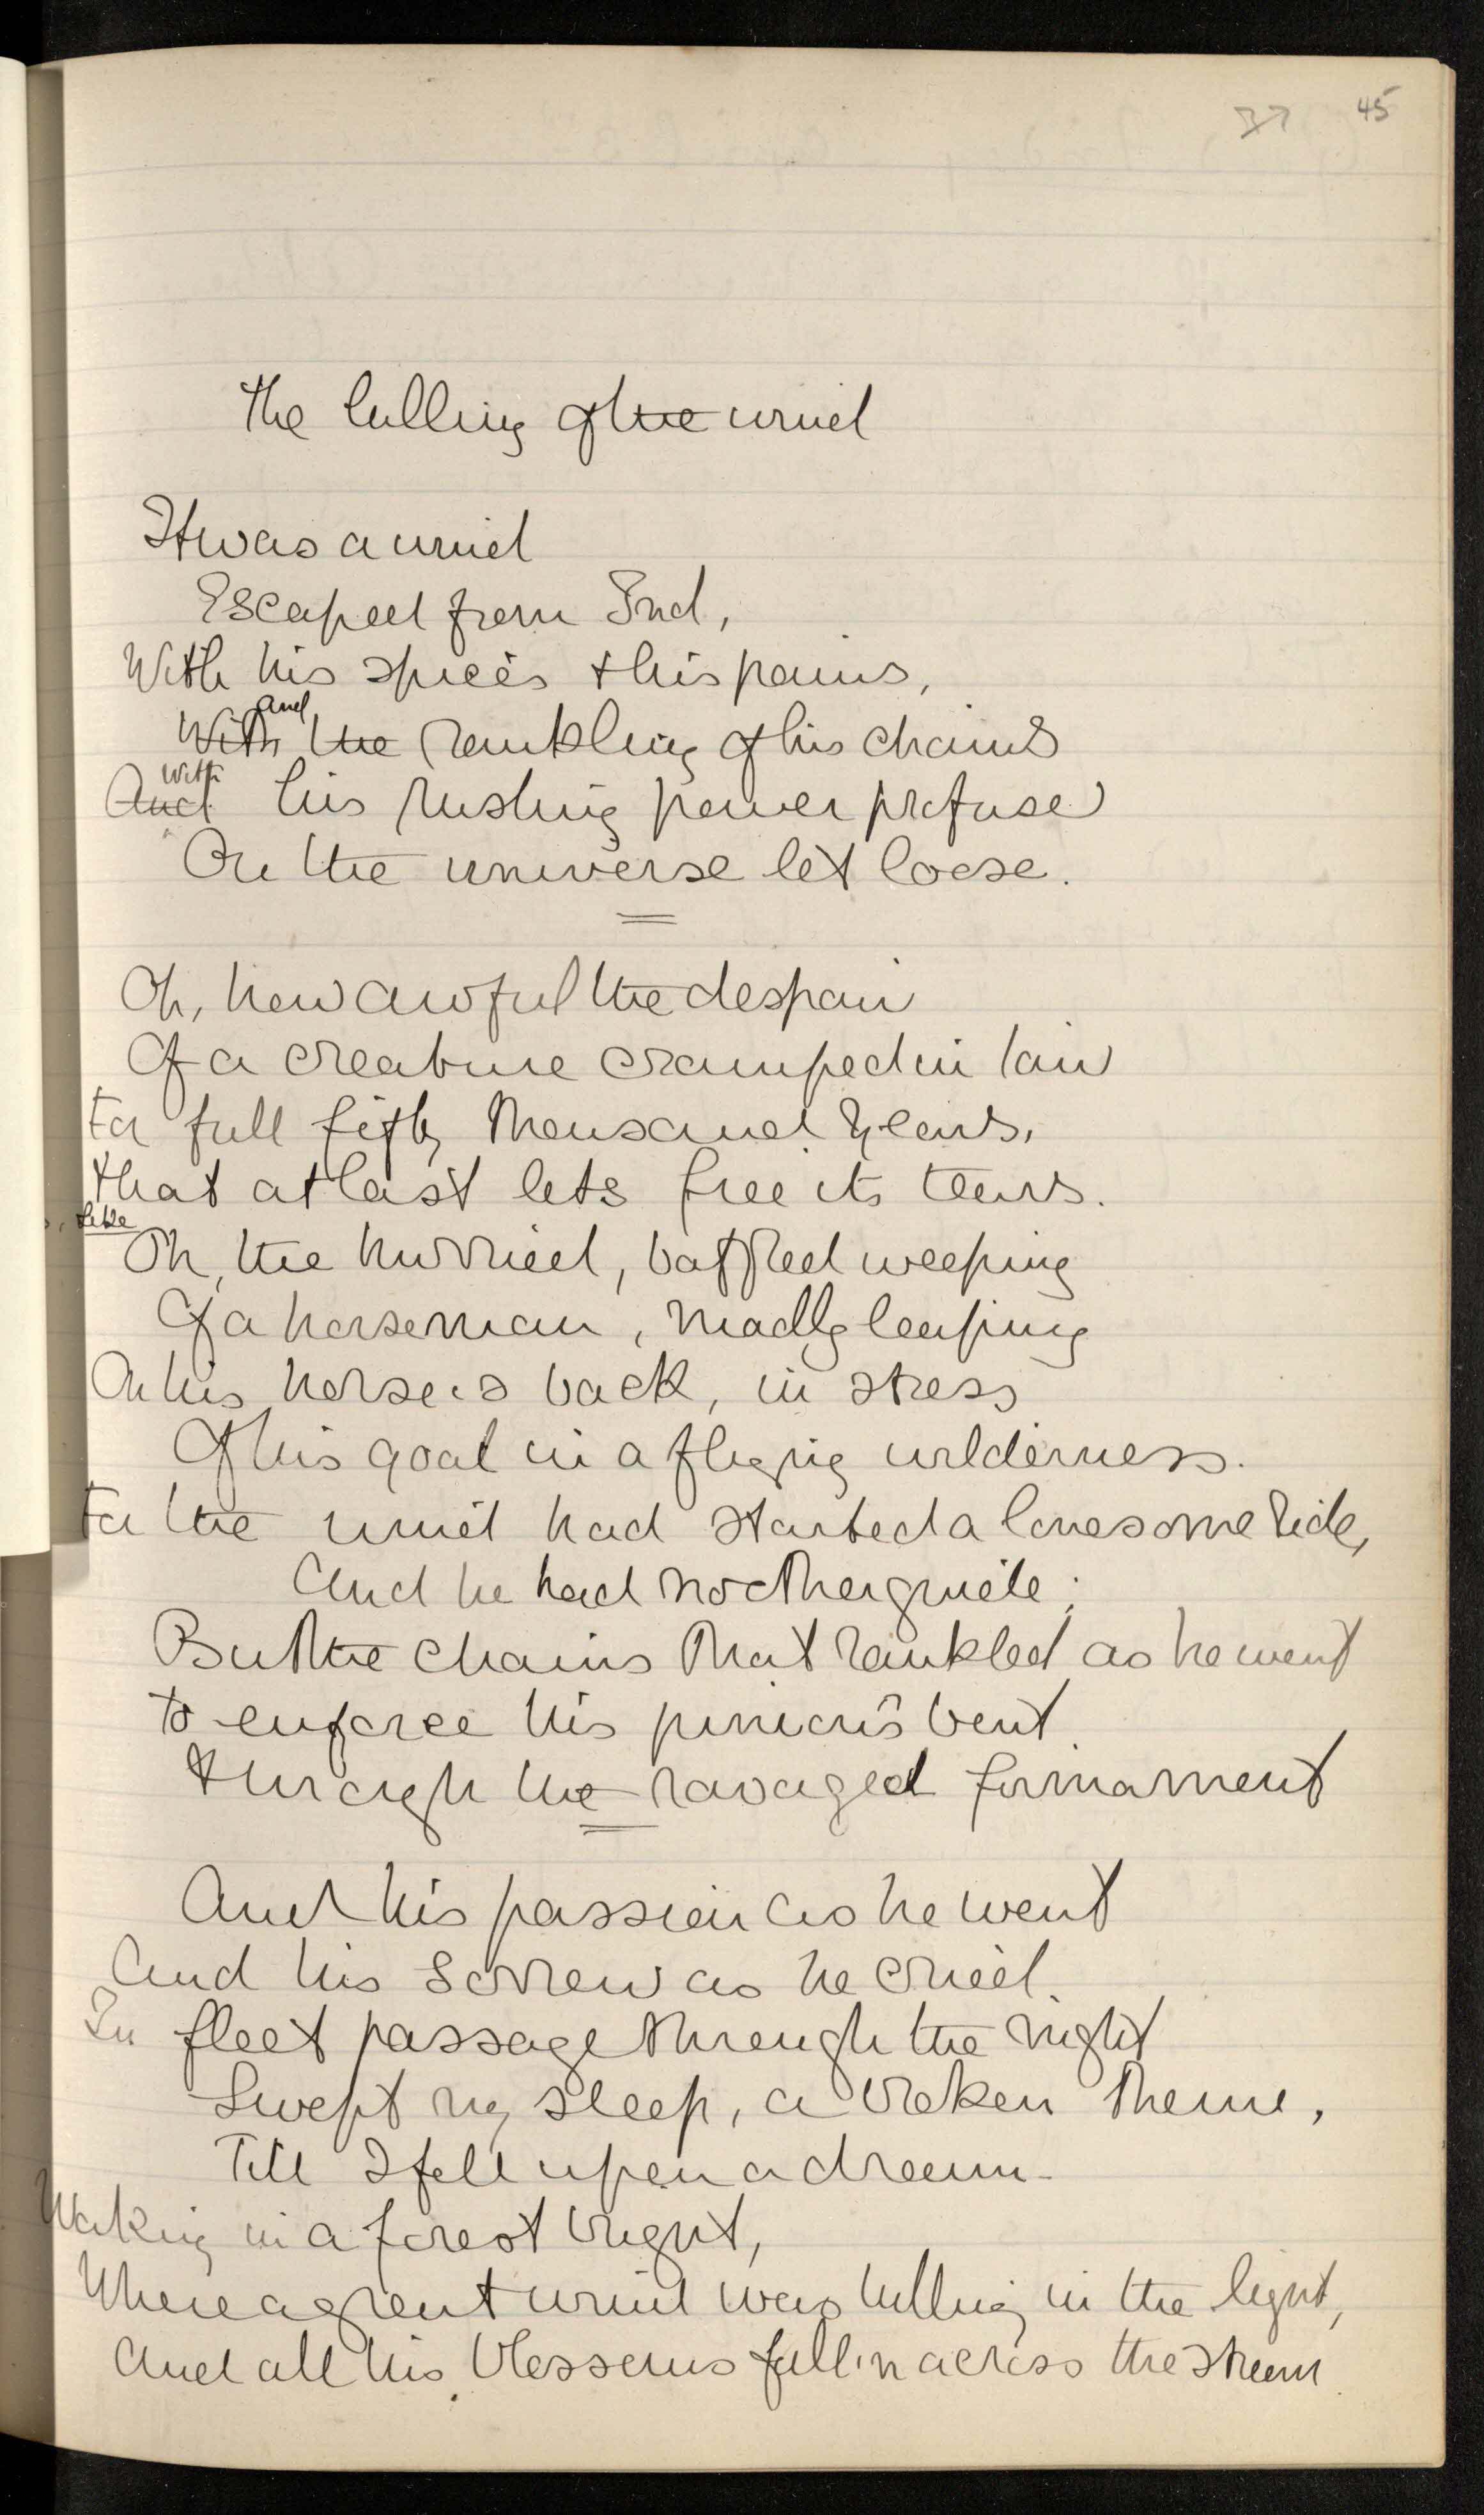 37 45
The lulling of the wind
It was a wind
Escaped from Ind,
With his spices & his pains,
and
With the rankling of his chains
With
And his rushing power profuse
On the universe let loose.
Oh, how awful the despair
Of a creature cramped in lair
For full fifty thousand years,
That at last lets free its tears.
like
Oh, the hurried, baffled weeping
Of a horseman, madly leaping
On his horse's back, in stress
Of his goal in a flying wilderness.
For the wind had started a lonesome ride,
And he had no other guide;
But the chains that rankled as he went
To enforce his pinion's bent
Through the ravaged firmament
And his passion as he went
And his sorrow as he cried
In fleet passage through the night
Swept my sleep, a broken theme,
Till I fell upon a dream-
Waking in a forest bright,
Where a great wind was lulling in the light,
And all his blossoms fall'n across the stream.